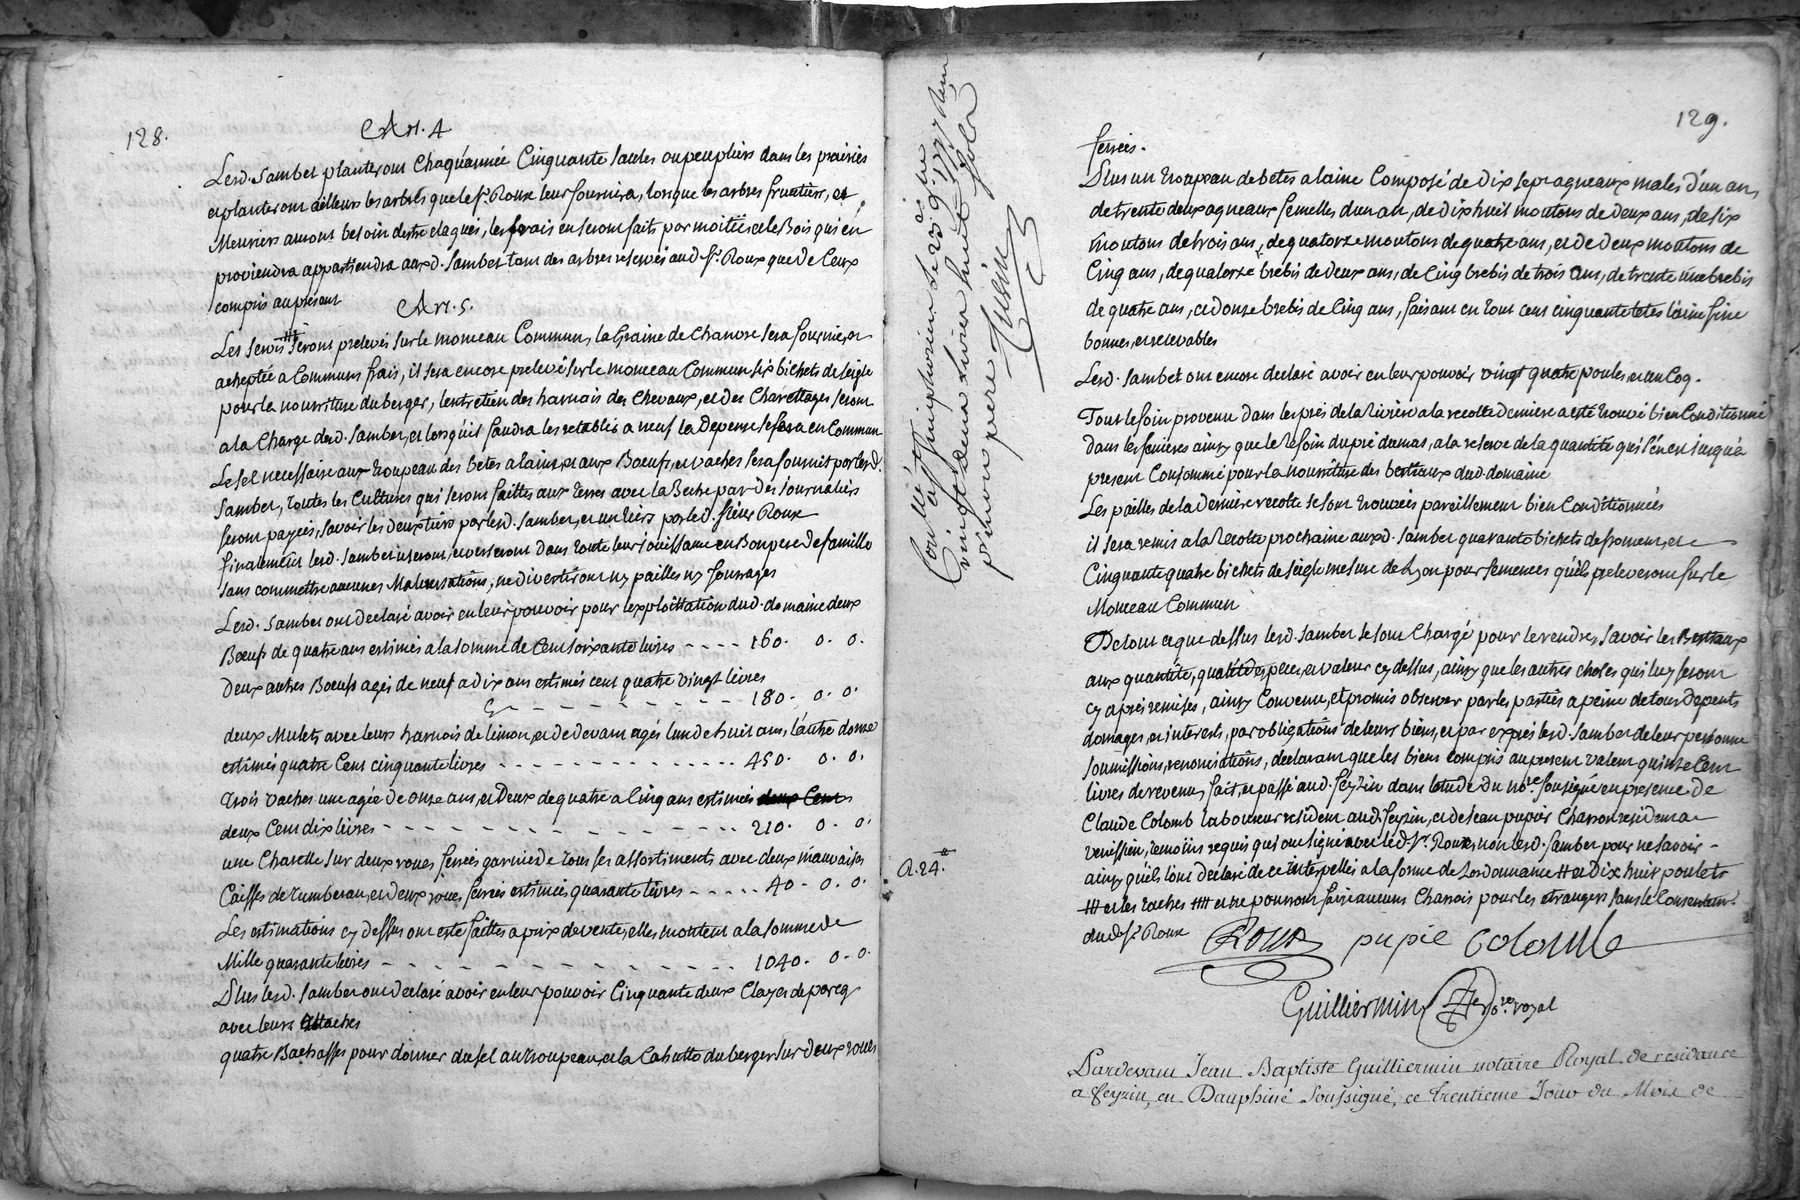 128.
Art. 4
Lesd. Sambet planteront chaquéannéé Cinquante saules ou peupliers dans les prairies
eplanteront ailleurs les arbres que le Sr. Roux leur fournira, lorsque les arbres fruitiers, et
Meuriers auront besoin destre elagués, les frais en seront faits par moitiée et le Bois qui en
proviendra appartiendra auxd. Sambet tant des arbres reservés aud Sr. Roux que de Ceux
compris au présent
Art. 5.
Les servis seront prelevés sur le monceau Commun, la Graine de Chanvre sera fournie, et
acheptée a Communs frais, il sera encore prelevé sur le monceau Commun six bichets de seigle
pour la nourriture du berger, lentretien des harnais des Chevaux, et des Charettages seront
a la Charge desd. Sambet, et lorsquil faudra les retablir a neuf la Depense se fera en Commun
Le sel necessaire aux troupeau des betes a laine, et aux Boeufs, et vaches sera fournit par lesd.
Sambet, toutes les Cultures qui seront faittes aux terres avec la Beche par des journaliers
seront payées, savoir les deux tiers par lesd. Sambet, et un tiers par led. sieur Roux
finalement lesd. Sambet useront, et verseront dans toute leur jouissance en Bon pere de famille
sans commettre aucunes Malversations, ne divertiront ny pailles ny fourages
Lesd. Sambet ont declaré avoir en leur pouvoir pour lexploittation dud. domaine deux
Boeufs de quatre ans estimés a la somme de Cent soixante livres ---- 160. 0. 0.
Deux autres Boeufs agés de neuf a dix ans estimés cent quatre vingt livres
Cy - - - - - - - - - 180. 0. 0.
deux Mulets avec leurs harnois de limon, et de devant agés lun de huit ans, l'autre douze
estimés quatre Cent cinquante livres - - - - - - - - - - - - - 450. 0. 0.
Trois vaches une agée de onze ans, et Deux de quatre a Cinq ans estimées deux Cent
deux Cent dix livres - - - - - - - - - - - - - - 210. 0. 0.
une Charette sur deux roues ferrées garnie de tous ses assortiments avec deux mauvaises
Caisses de tumbereau, et deux roues ferrées estimées quarante livres ----- 40. 0. 0.
Les estimations cy dessus ont esté faittes a prix de vente, elles montent a la somme de
Mille quarante livres - - - - - - - - - - - - 1040. 0. 0.
Plus lesd. Sambet ont declaré avoir en leur pouvoir Cinquante deux Clayes de parcq
avec leurs attaches
quatre Bachasses pour donner du sel au troupeau, et la Cahutte du berger sur deux roues
129.
ferrées.
Plus un troupeau de betes a laine Composé de Dix sept agneaux males d'un an,
de trente deux agneaux femelles d'un an, de dix huit moutons de deux ans, de six
moutons de trois ans, de quatorze moutons de quatre ans, et de deux moutons de
Cinq ans, de quatorze brebis de deux ans, de Cinq brebis de trois ans, de trente une brebis
de quatre ans, et donze brebis de Cinq ans, faisant en tout cent cinquante tetes laine fine
bonnes, et recevables
Lesd. Sambet ont encore declaré avoir en leur pouvoir vingt quatre poules, et un Coq.
Tout le foin provenu dans les prés de la riviere a la recolte derniere a esté trouvé bien Conditionné
dans les fenieres ainsy que le refoin du pré damas, a la reserve de la quantité qui s'en est jusqu'a
present Consommé pour la nourriture des bestiaux dud domaine
Les pailles de la derniere recolte se sont trouvées pareillement bien Conditionnées
il sera remis a la Recolte prochaine auxd. Sambet quarante bichets de froment, et
Cinquante quatre bichets de seigle mesure de Lyon pour semences qu'ils preleveront sur le
Monceau Commun
De tout ce que dessus lesd. Sambet se sont Chargé pour le rendre, savoir les Bestiaux
aux quantité, qualité espece, et valeur cy dessus, ainsy que les autres choses qui luy seront
cy apres remises, ainsy Convenu, et promis observer par les parties a peine de tous Depents
domages, et interests, par obligations de leurs biens, et par exprés lesd. Sambet de leur personne
soumissions, renonciations, declarant que les biens compris au present valent quinze Cent
livres de revenu, fait, et passé aud. feyzin dans letude du nore. soussigné en presence de
Claude Colomb laboureur resident aud. feyzin, et de jean pupier Charron resident a
venissieu, temoins requis qui ont signé avec led. Sr. Roux, non lesd. Sambet pour ne savoir -
ainsy qu'ils l'ont declaré de ce interpellés a la forme de Lordonnance # et Dix huit poulets
## et les vaches ### et ne pourront faire aucuns Charrois pour les etrangers sans le Consentemt.
dud Sr. Roux
Roux pupie colomb
Guilliermin nore. royal
Pardevant Jean Baptiste Guilliermin notaire Royal de residance
a feyzin, en Dauphiné Soussigné, ce trentieme Jour du Mois de
Con llé et
a St simphorien le 20 9bre 1777 Reçu
vingt deux livres huit sols
primon pere
a. 24.